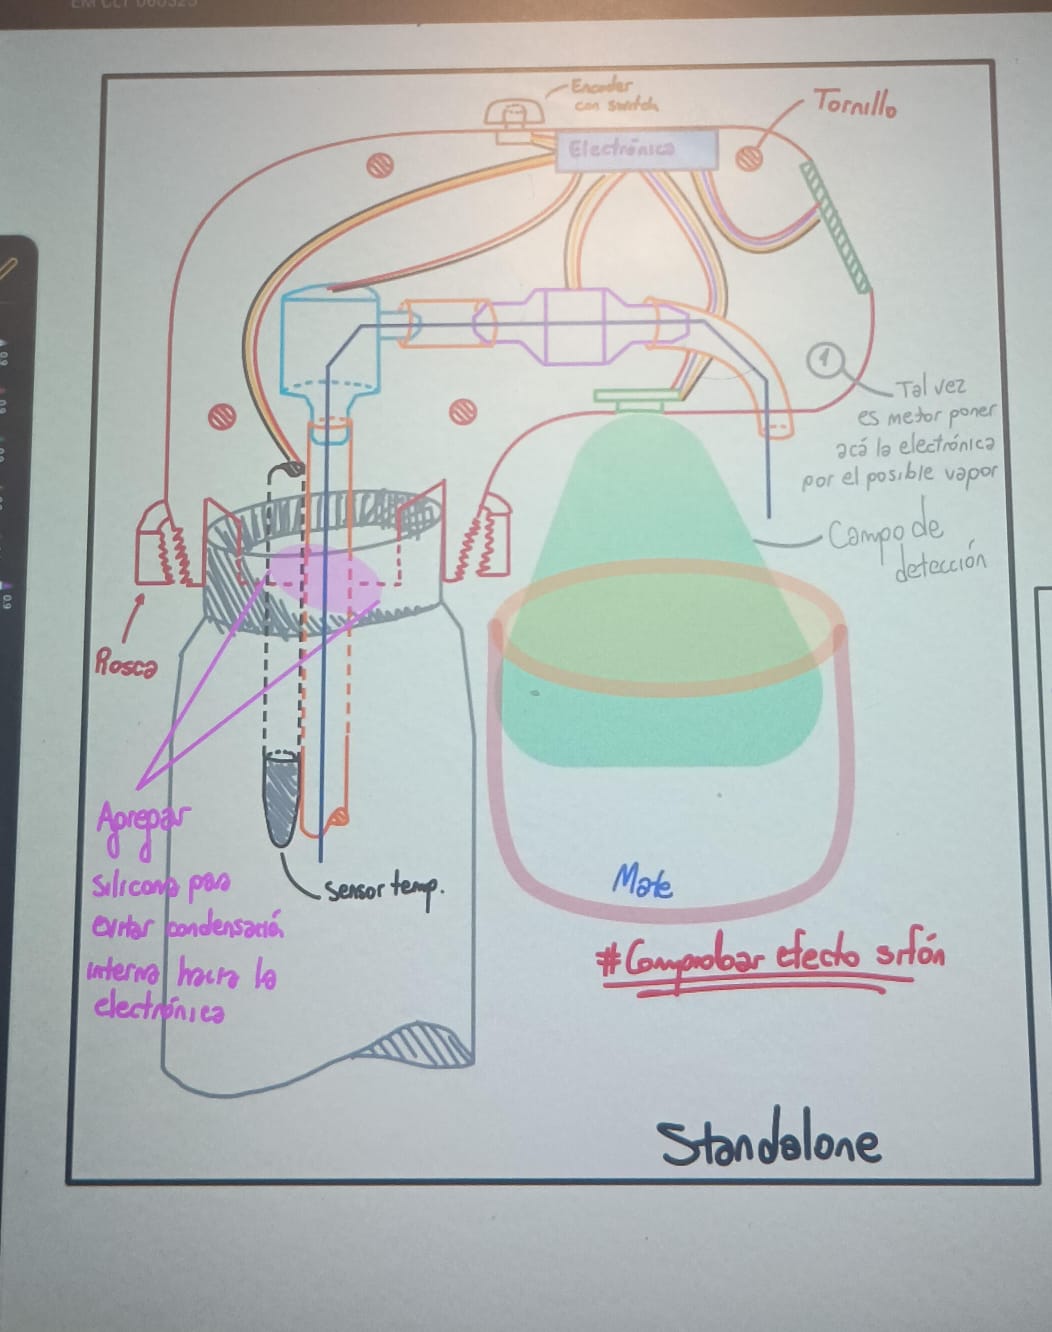 Encoder
con switch
Electrónica
Tornillo
1
Tal vez
es mejor poner
acá la electrónica
por el posible vapor
Campo de
detección
Rosca
Agregar
silicona para
evitar condensación
interna hacia la
electrónica
Sensor temp.
Mate
#Comprobar efecto sifón
Standalone